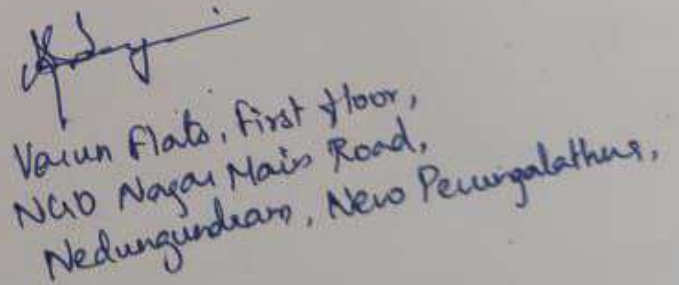 Varun Flats, First floor,
NGO Nagar Main Road,
Nedungundram, New Perungalathur,